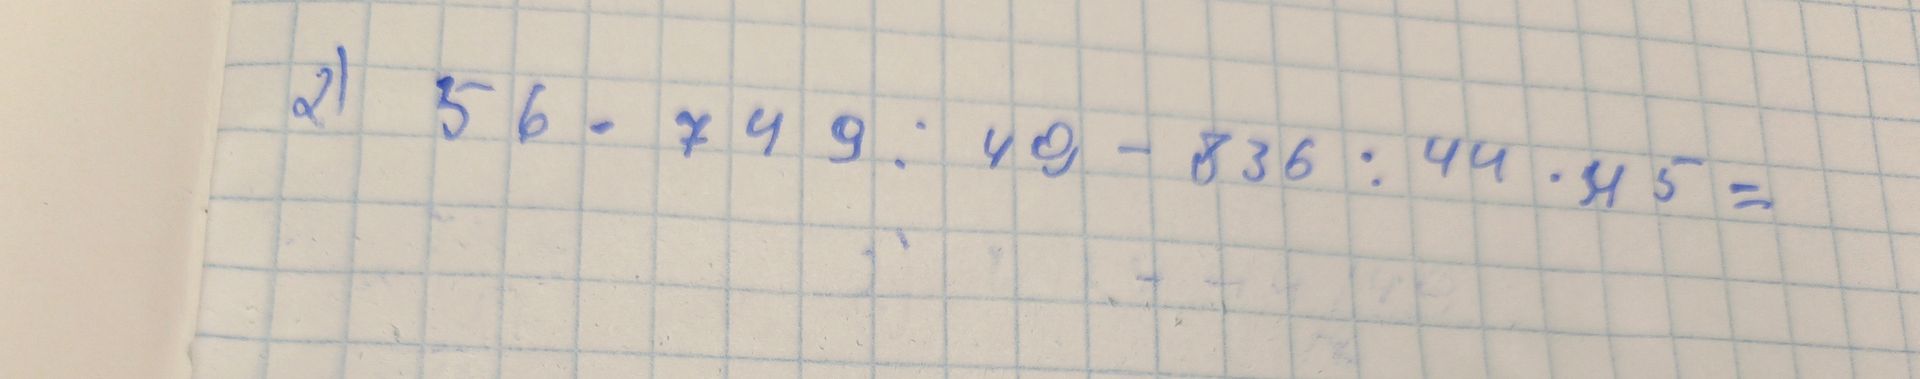 2) 56 · 749 : 49 - 836 : 44 · 45 =